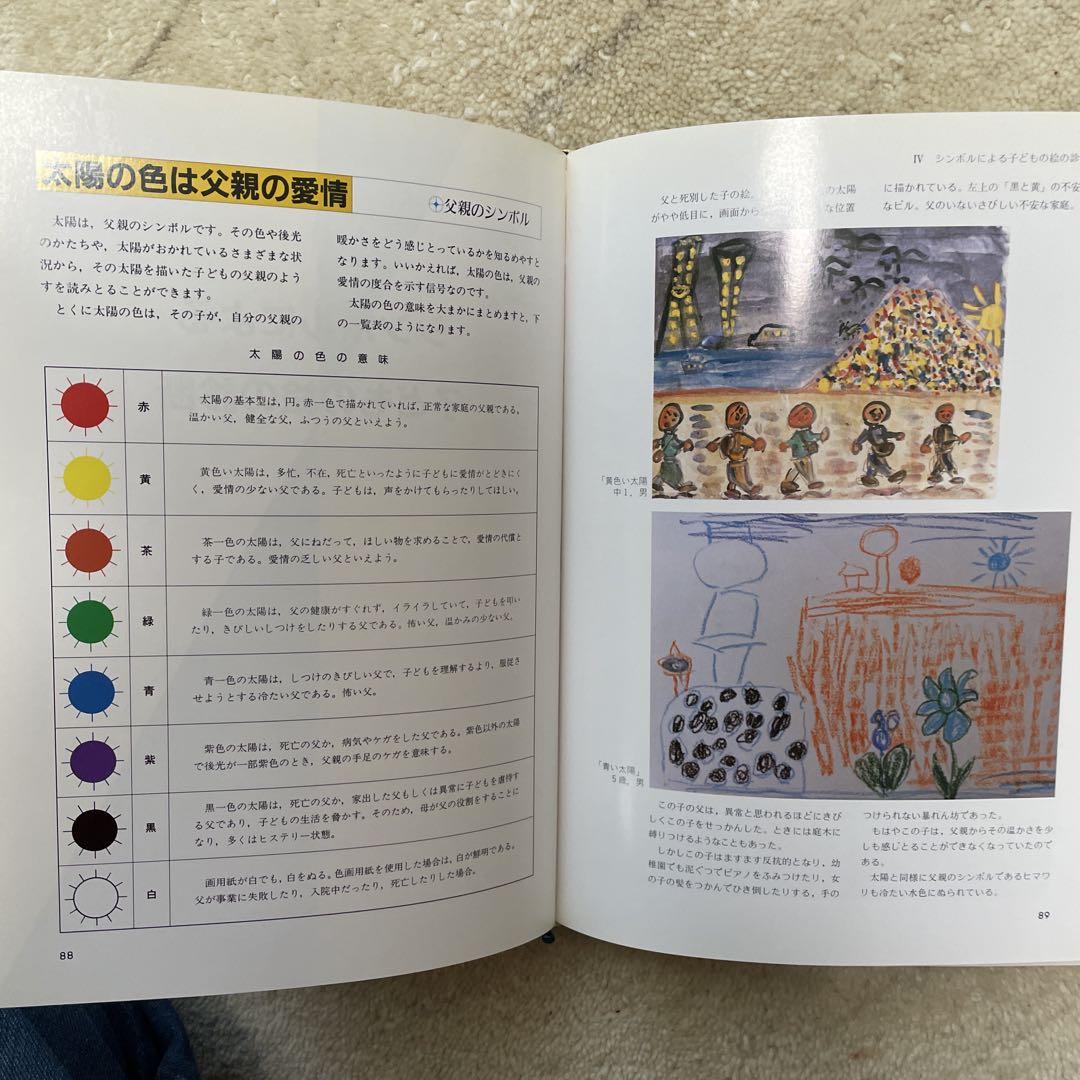 太陽の色は父親の愛情
父親のシンボル
太陽は，父親のシンボルです。その色や後光
のかたちや，太陽がおかれているさまざまな状
況から，その太陽を描いた子どもの父親のよう
すを読みとることができます。
とくに太陽の色は，その子が，自分の父親の
暖かさをどう感じとっているかを知るめやすと
なります。いいかえれば，太陽の色は，父親の
愛情の度合を示す信号なのです。
太陽の色の意味を大まかにまとめますと，下
の一覧表のようになります。
太陽の色の意味
赤
太陽の基本型は，円。赤一色で描かれていれば，正常な家庭の父親である，
温かい父，健全な父，ふつうの父といえよう。
黄
黄色い太陽は，多忙，不在，死亡といったように子どもに愛情がとどきにく
く，愛情の少ない父である。子どもは，声をかけてもらったりしてほしい，
茶
茶一色の太陽は，父にねだって，ほしい物を求めることで，愛情の代償と
する子である。愛情の乏しい父といえよう。
緑
緑一色の太陽は，父の健康がすぐれず，イライラしていて，子どもを叩い
たり，きびしいしつけをしたりする父である。怖い父，温かみの少ない父。
青
青一色の太陽は，しつけのきびしい父で，子どもを理解するより，服従さ
せようとする冷たい父である。怖い父。
紫
紫色の太陽は，死亡の父か，病気やケガをした父である。紫色以外の太陽
で後光が一部紫色のとき，父親の手足のケガを意味する。
黒
黒一色の太陽は，死亡の父か，家出した父もしくは異常に子どもを虐待す
る父であり，子どもの生活を脅かす。そのため，母が父の役割をすることに
なり，多くはヒステリー状態。
白
画用紙が白でも，白をぬる。色画用紙を使用した場合は，白が鮮明である。
父が事業に失敗したり，入院中だったり，死亡したりした場合。
88
IV シンボルによる子どもの絵の診
父と死別した子の絵。 の太陽
がやや低目に，画面から な位置
に描かれている。左上の「黒と黄」の不安
なビル。父のいないさびしい不安な家庭。
「黄色い太陽
中1，男
「青い太陽」
5歳，男
この子の父は，異常と思われるほどにきび
しくこの子をせっかんした。ときには庭木に
縛りつけるようなこともあった。
しかしこの子はますます反抗的となり，幼
稚園でも泥ぐつでピアノをふみつけたり，女
の子の髪をつかんでひき倒したりする，手の
つけられない暴れん坊であった。
もはやこの子は，父親からその温かさを少
しも感じとることができなくなっていたので
ある。
太陽と同様に父親のシンボルであるヒマワ
リも冷たい水色にぬられている。
89